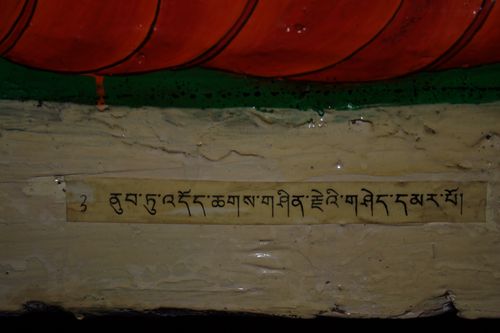 ༣ ནུབ་ཏུ་འདོད་ཆགས་གཤིན་རྗེའི་གཤེད་དམར་པོ།